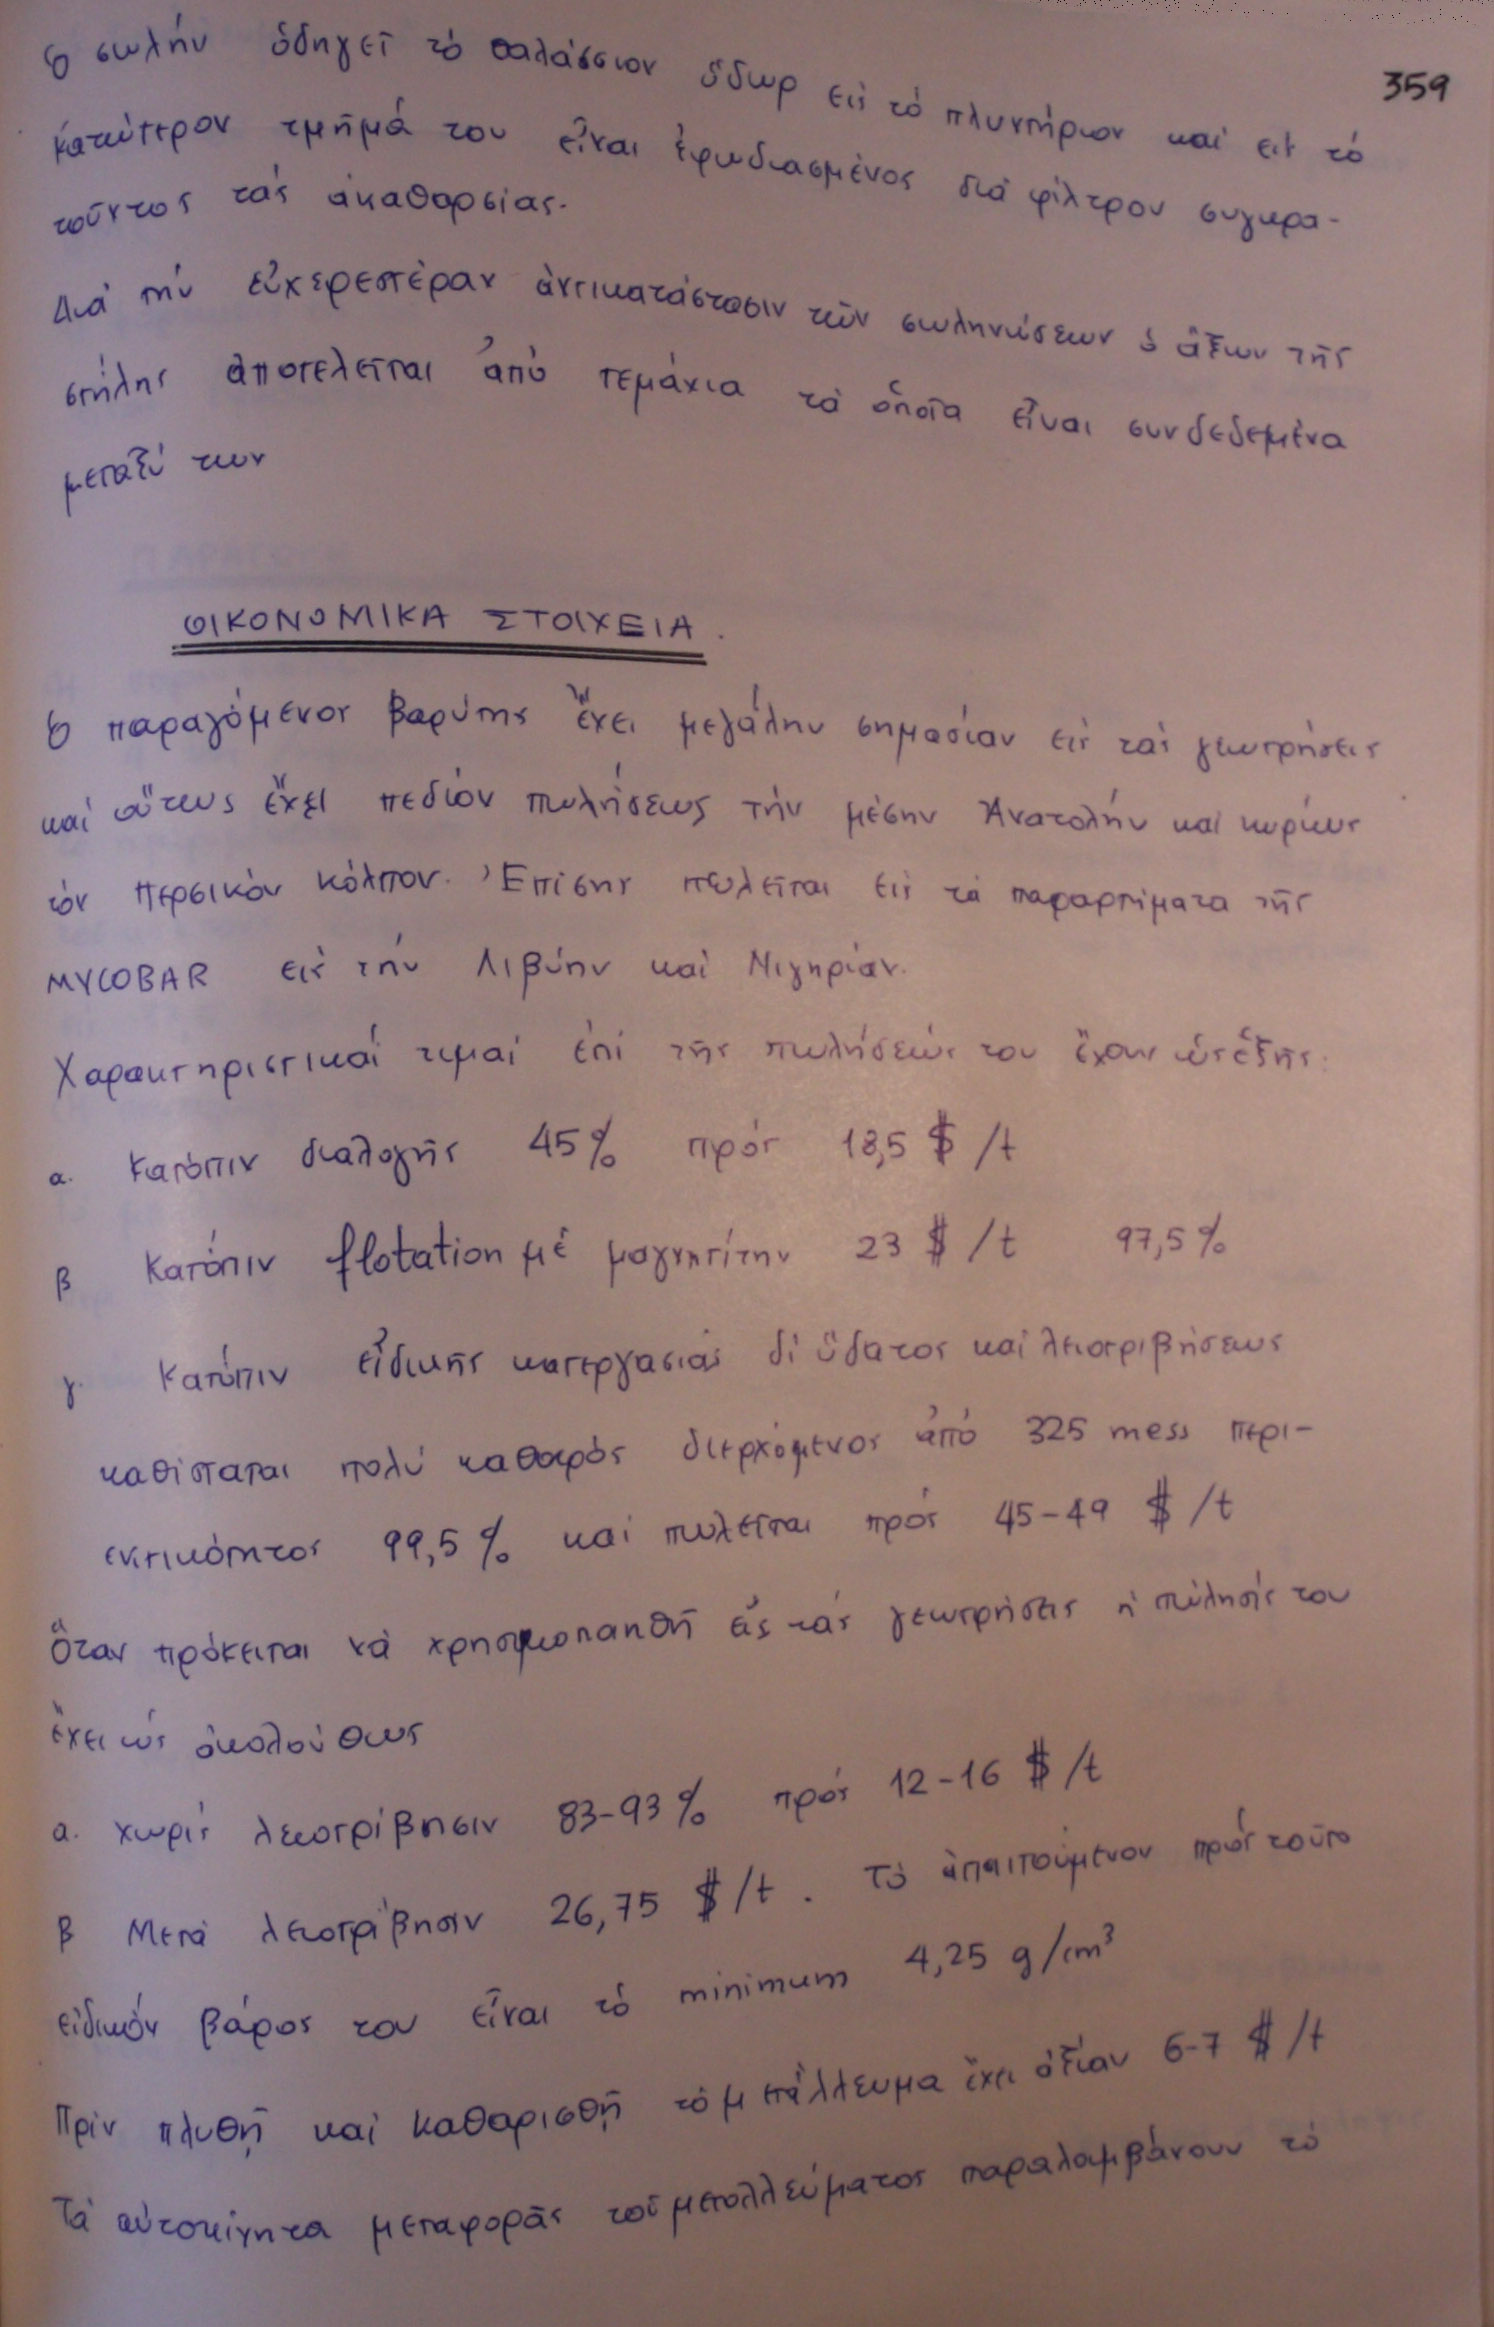 359
Ὁ σωλήν ὁδηγεῖ τό θαλάσσιον ὕδωρ εἰς τό πλυντήριον καί εἰς τό
κατώτερον τμῆμά του εἶναι ἐφωδιασμένος διά φίλτρου συγκρα-
τοῦντος τάς ἀκαθαρσίας.
Διά τήν εὐχερεστέραν ἀντικατάστασιν τῶν σωληνώσεων ὁ ἄξων τῆς
στήλης ἀποτελεῖται ἀπό τεμάχια τά ὁποῖα εἶναι συνδεδεμένα
μεταξύ των
ΟΙΚΟΝΟΜΙΚΑ ΣΤΟΙΧΕΙΑ.
Ὁ παραγόμενος βαρύτης ἔχει μεγάλην σημασίαν εἰς τάς γεωτρήσεις
καί οὕτως ἔχει πεδίον πωλήσεως τήν μέσην Ἀνατολήν καί κυρίως
τόν Περσικόν κόλπον. Ἐπίσης πωλεῖται εἰς τά παραρτήματα τῆς
MYCOBAR εἰς τήν Λιβύην καί Νιγηρίαν.
Χαρακτηριστικαί τιμαί ἐπί τῆς πωλήσεώς του ἔχουν ὡς ἑξῆς:
α. Κατόπιν διαλογῆς 45% πρός 18,5 $/t
β Κατόπιν flotation μέ μαγνητίτην 23 $/t 97,5%
γ. Κατόπιν εἰδικῆς κατεργασίας δι ὕδατος καί λειοτριβήσεως
καθίσταται πολύ καθαρός διερχόμενος ἀπό 325 mess περι-
εκτικότητος 99,5% καί πωλεῖται πρός 45-49 $/t
Ὅταν πρόκειται νά χρησιμοποιηθῆ εἰς τάς γεωτρήσεις ἡ πώλησίς του
ἔχει ὡς ἀκολούθως
α. χωρίς λειοτρίβησιν 83-93% πρός 12-16 $/t
β Μετά λειοτρίβησιν 26,75 $/t. Τό ἀπαιτούμενον πρός τοῦτο
εἰδικόν βάρος του εἶναι τό minimum 4,25 g/cm³
Πρίν πλυθῆ καί καθαρισθῆ τό μετάλλευμα ἔχει ἀξίαν 6-7 $/t
Τά αὐτοκίνητα μεταφορᾶς τοῦ μεταλλεύματος παραλαμβάνουν τό